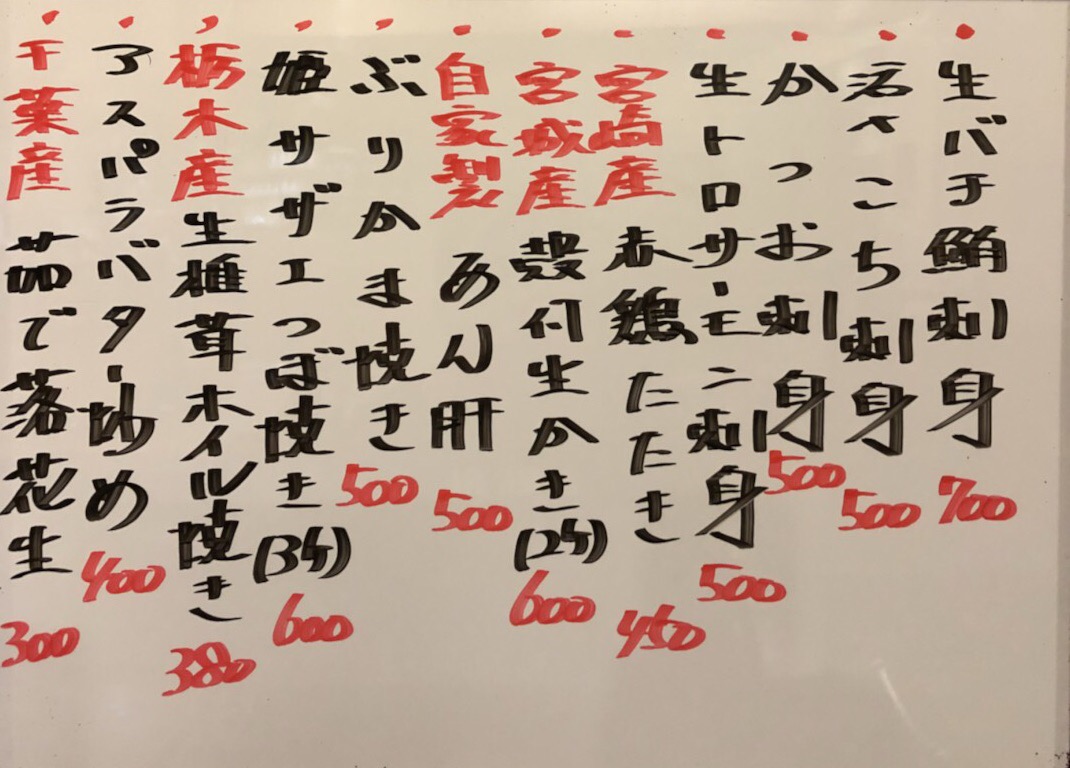 ・生バチ鮪刺身 700
・活〆こち刺身 500
・かつお刺身 500
・生トロサーモン刺身 500
・宮崎産 赤鶏たたき 450
・宮城産 殻付生かき(2ケ) 600
・自家製 あん肝 500
・ぶりかま焼き 500
・姫サザエつぼ焼き(3ケ) 600
・栃木産 生椎茸ホイル焼き 380
・アスパラバター炒め 400
・千葉産 茹で落花生 300